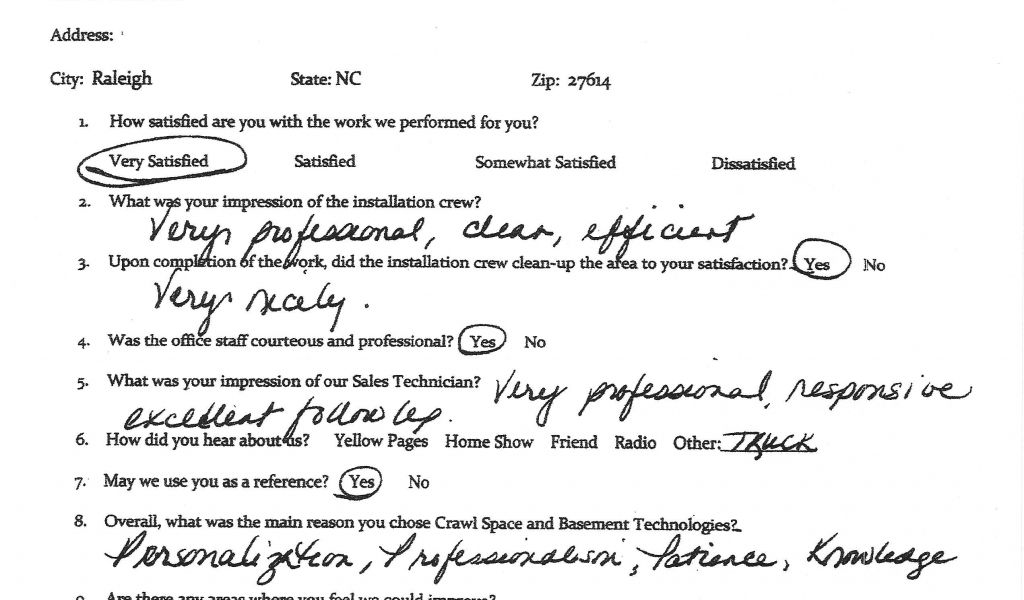 Address:
City: Raleigh State: NC Zip: 27614
1. How satisfied are you with the work we performed for you?
Very Satisfied Satisfied Somewhat Satisfied Dissatisfied
2. What was your impression of the installation crew?
Very professional, clean, efficient
3. Upon completion of the work, did the installation crew clean-up the area to your satisfaction? Yes No
Very nicely.
4. Was the office staff courteous and professional? Yes No
5. What was your impression of our Sales Technician? Very professional, responsive
excellent follow up.
6. How did you hear about us? Yellow Pages Home Show Friend Radio Other: TRUCK
7. May we use you as a reference? Yes No
8. Overall, what was the main reason you chose Crawl Space and Basement Technologies?
Personalization, Professionalism, Patience, Knowledge
9. Are there any areas where you feel we could improve?